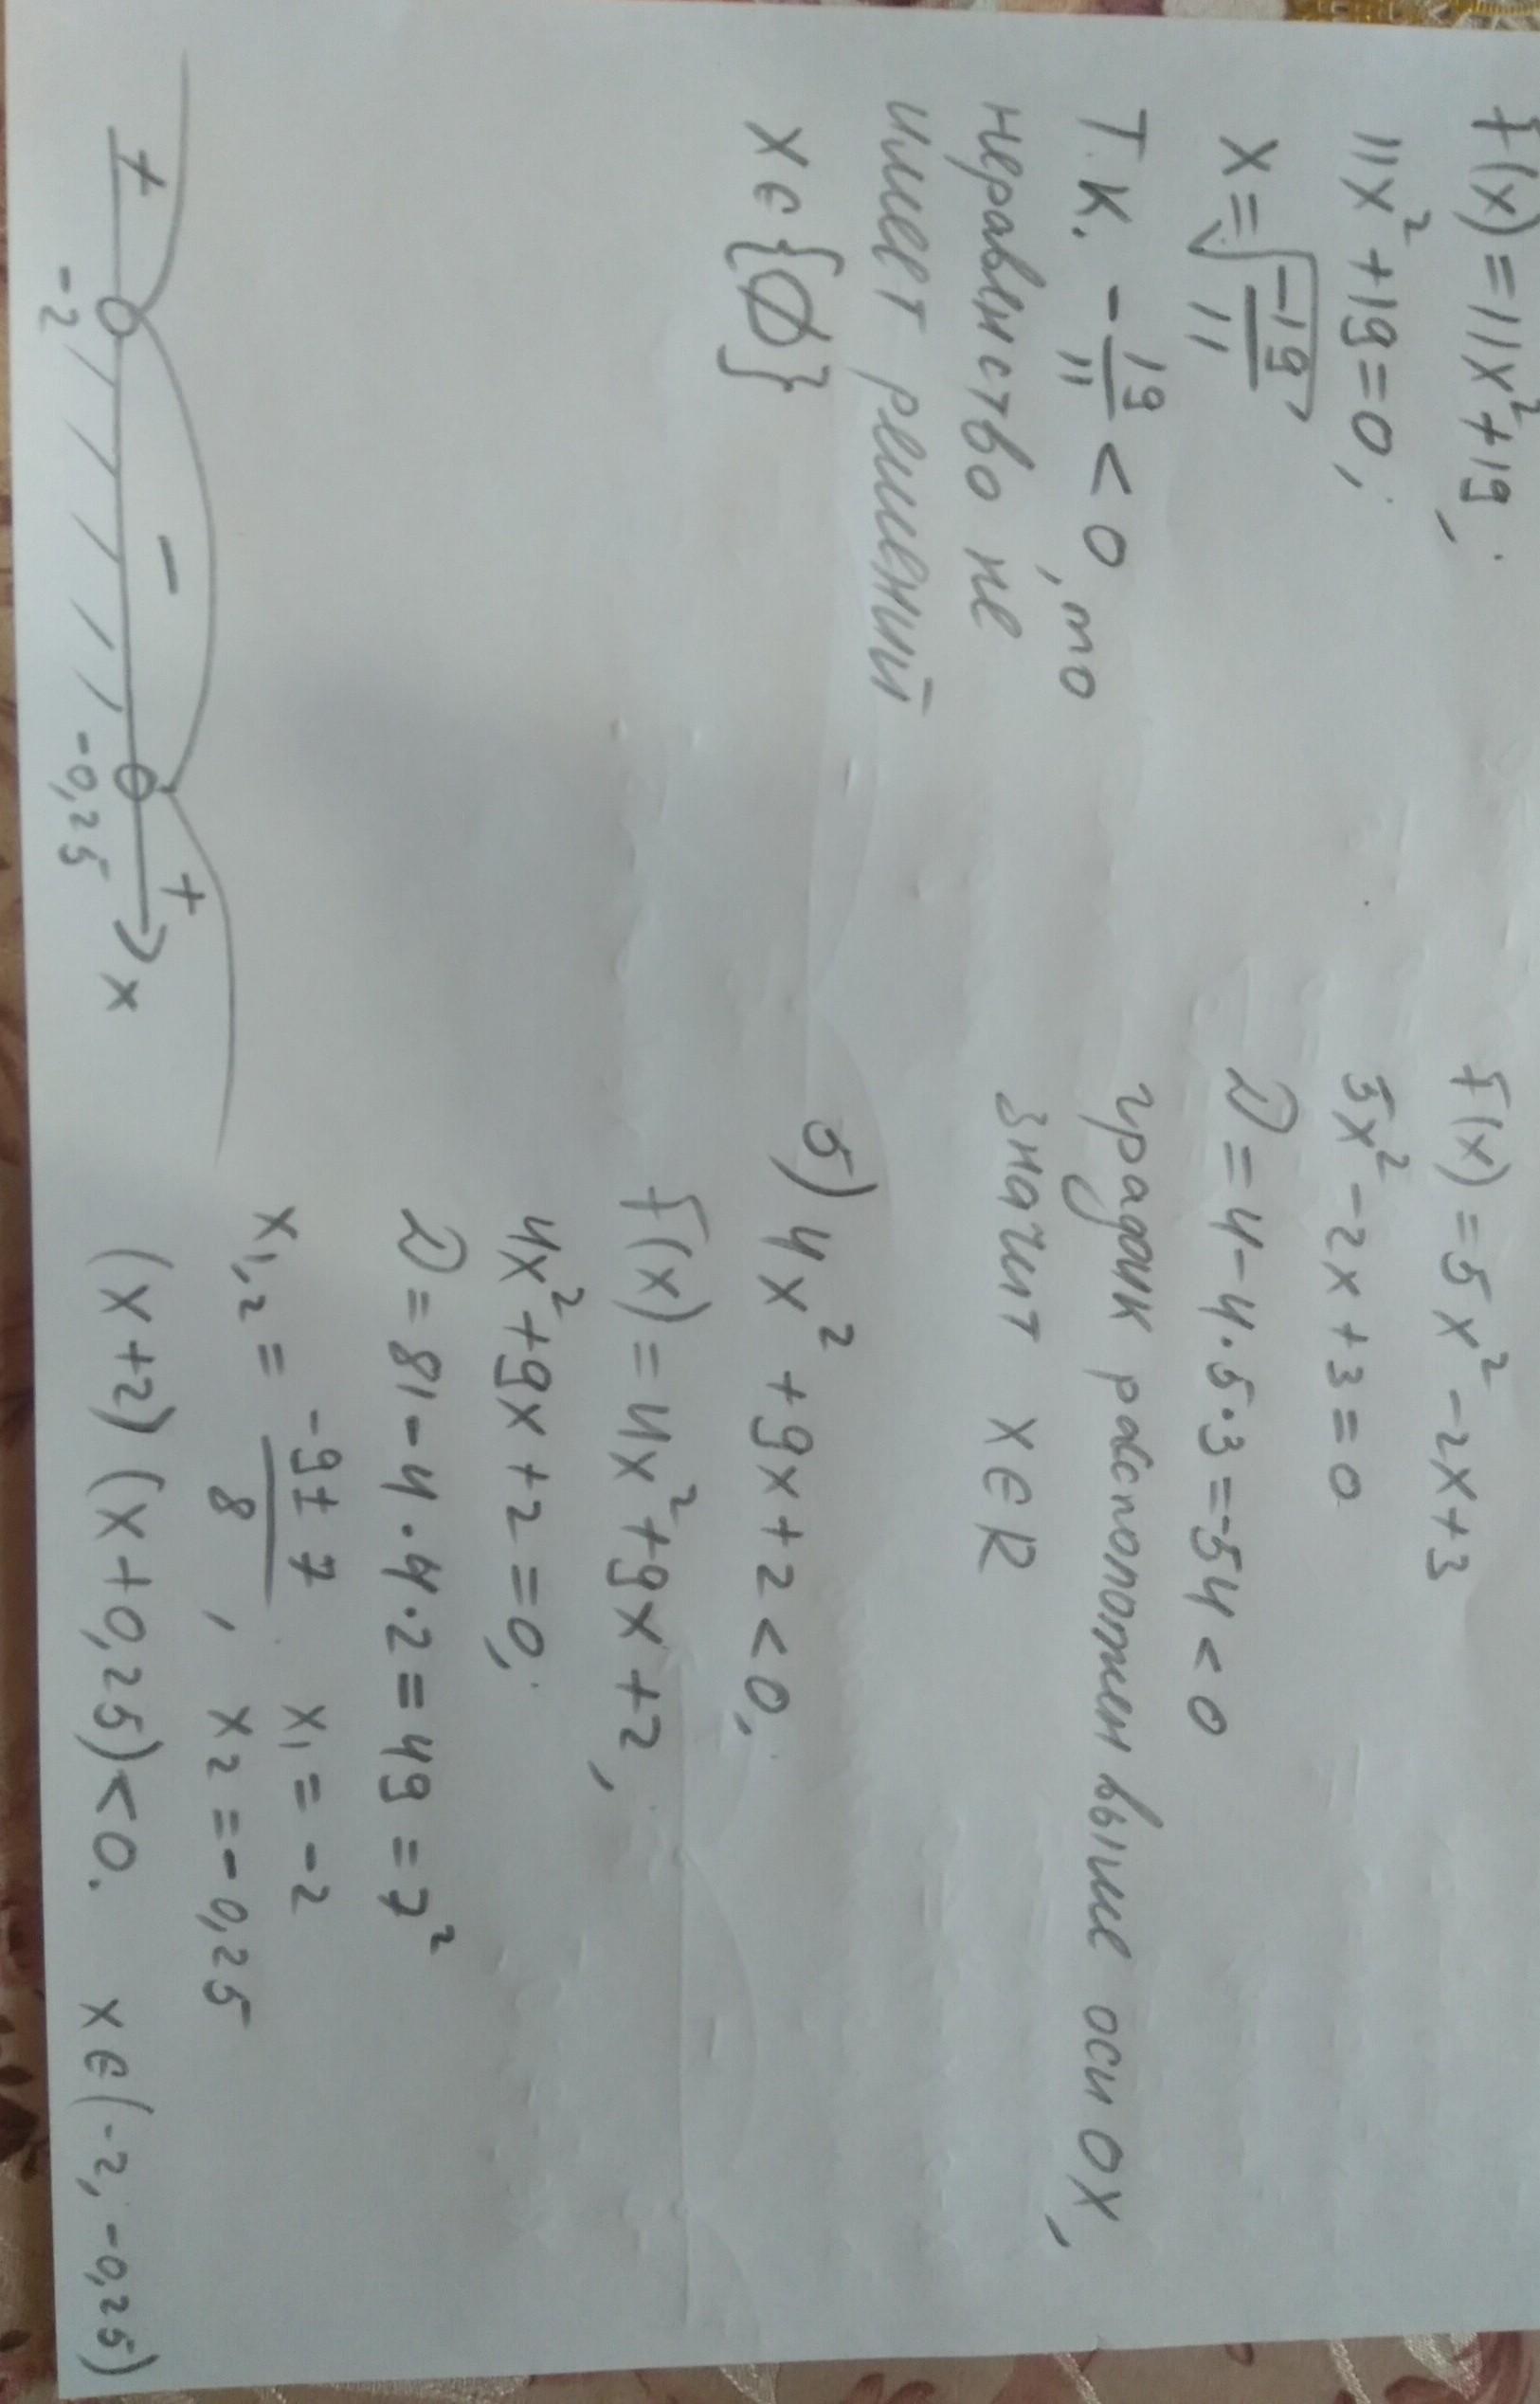 f(x) = 11x²+19;
11x²+19=0;
x=√(-19/11),
Т.К. -19/11 < 0, то
неравенство не
имеет решений
x∈{∅}
f(x) = 5x²-2x+3
5x²-2x+3=0
D=4-4·5·3=-54<0
график расположен выше оси OX,
значит x∈R
б) 4x²+9x+2<0,
f(x)=4x²+9x+2,
4x²+9x+2=0;
D=81-4·4·2=49=7²
x1,2 = (-9±7)/8, x1=-2
x2=-0,25
(x+2)(x+0,25)<0. x∈(-2,-0,25)
+ - +
-2 -0,25 x